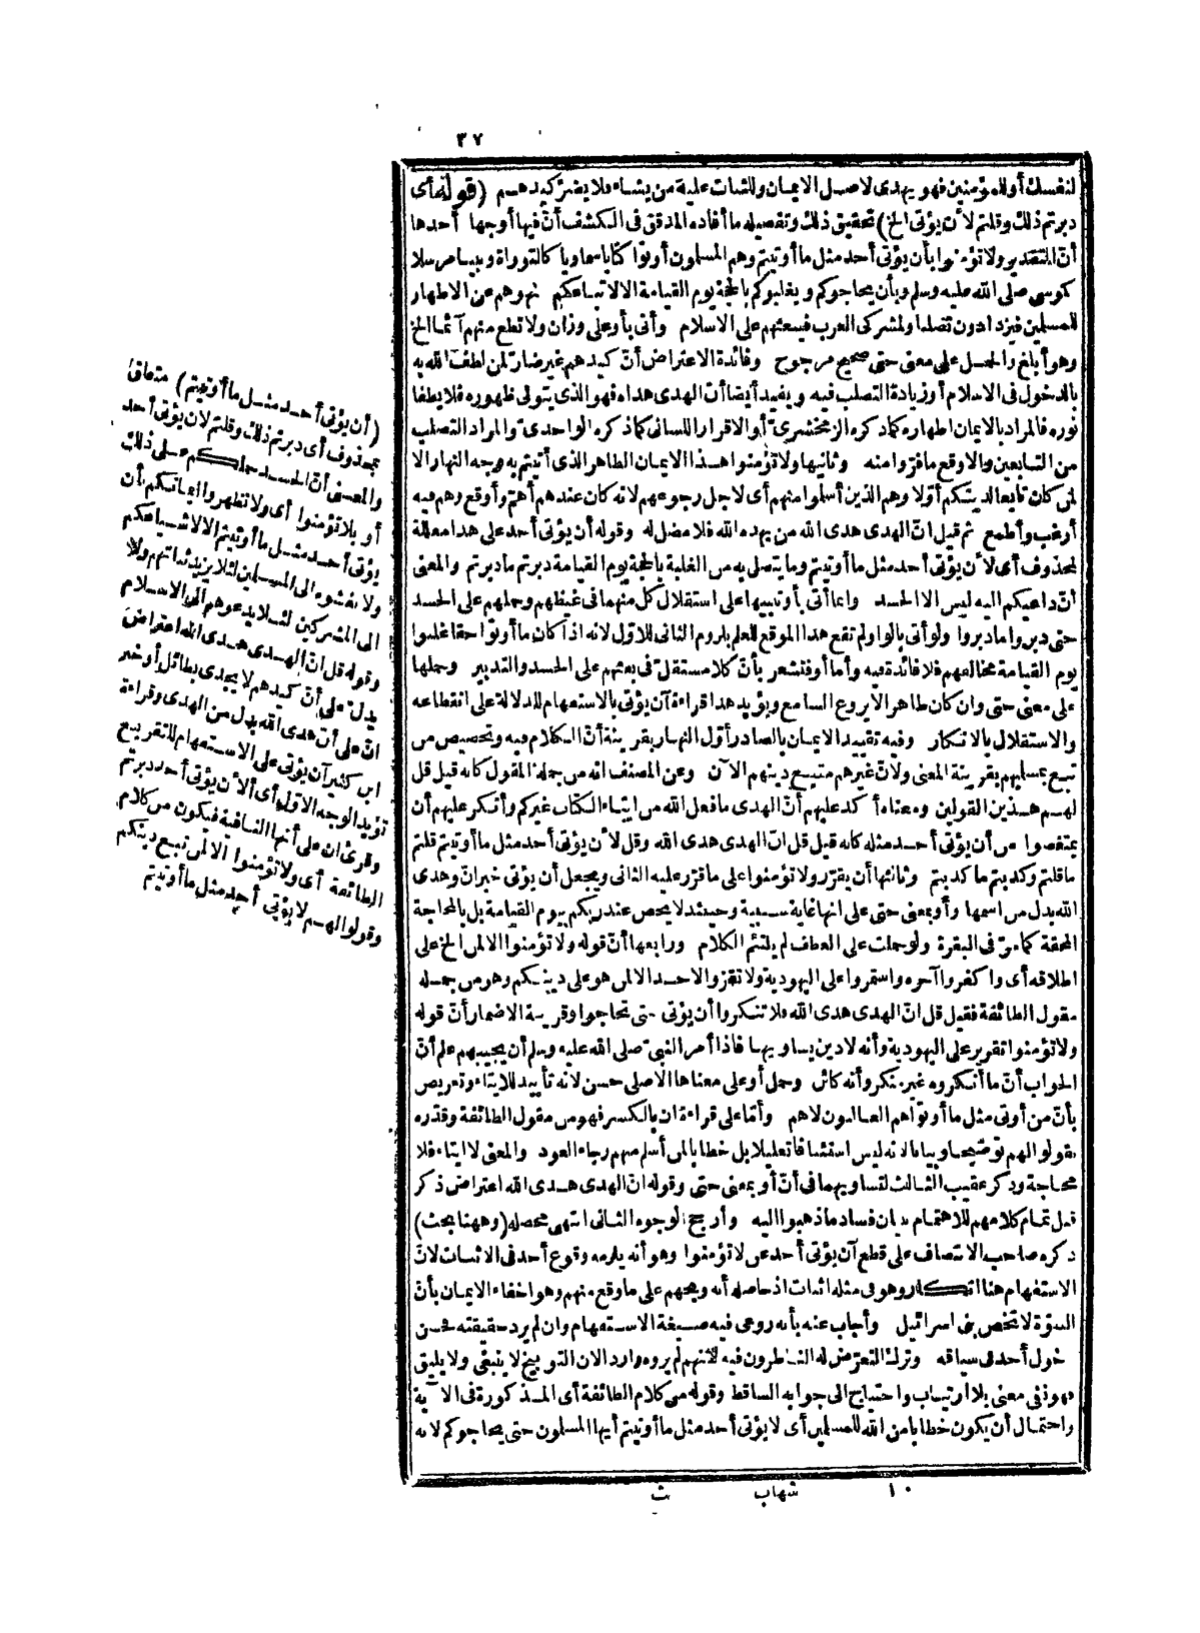 ٣٧
لنفسك أو للمؤمنين فهو يهدى لاصل الايمان وللثبات عليه من يشاء فلا يضر كيدهم (قوله أى
دبرتم ذلك وقلتم لأن يؤتى الخ) تحقيق ذلك وتفصيله ما أفاده المدقق فى الكشف أنّ فيها أوجها أحدها
أنّ التقدير ولا تؤمنوا بأن يؤتى أحد مثل ما أوتيتم وهم المسلمون أوتوا كتابا سماويا كالتوراة ونبيا مرسلا
كموسى صلى الله عليه وسلم وبأن يحاجوكم ويغلبوكم بالحجة يوم القيامة الا لاتباعكم نهوهم عن الاظهار
للمسلمين فيزدادون تصلبا ولمشركى العرب فيبعثهم على الاسلام وأتى بأو على وزان ولا تطع منهم آثما الخ
وهو أبلغ والحمل على معنى حتى صحيح مرجوح وفائدة الاعتراض أنّ كيدهم غير ضار لمن لطف الله به
بالدخول فى الاسلام أو زيادة التصلب فيه ويفيد أيضا أنّ الهدى هداه فهو الذى يتولى ظهوره فلا يطفا
نوره فالمراد بالايمان اظهاره كما ذكره الزمخشرىّ أو الاقرار اللسانى كما ذكره الواحدىّ والمراد التصلب
من التابعين والا وقع ما فرّوا منه وثانيها ولا تؤمنوا هذا الايمان الظاهر الذى أتيتم به وجه النهار الا
لمن كان تابعا لدينكم أوّلا وهم الذين أسلموا منهم أى لاجل رجوعهم لانه كان عندهم أهمّ وأوقع وهم فيه
أرغب وأطمع ثم قيل انّ الهدى هدى الله من يهده الله فلا مضل له وقوله أن يؤتى أحد على هذا معللة
لمحذوف أى لأن يؤتى أحد مثل ما أوتيتم وما يتصلى به من الغلبة بالحجة يوم القيامة دبرتم ما دبرتم والمعنى
أنّ داعيكم اليه ليس الا الحسد وانما أتى بأو تنبيها على استقلال كل منهما فى غيظهم وحملهم على الحسد
حتى دبروا ما دبروا ولو أتى بالواو لم تقع هذا الموقع للعلم بلزوم الثانى للاوّل لانه اذا كان ما أوتوا حقا غلبوا
يوم القيامة مخالفهم فلا فائدة فيه وأما أو فتشعر بأنّ كلا مستقلّ فى بعثهم على الحسد والتدبير وحملها
على معنى حتى وان كان ظاهرا لا يروع السامع ويؤيد هذا قراءة آن يؤتى بالاستفهام للدلالة على انقطاعه
والاستقلال بالانكار وفيه تقييد الايمان بالصادر أوّل النهار بقرينة أنّ الكلام فيه وتخصيص من
تبع بمسليهم بقرينة المعنى ولانّ غيرهم متبع دينهم الآن وعن المصنف انه من جملة المقول كانه قيل قل
لهم هذين القولين ومعناه أكد عليهم أنّ الهدى ما فعل الله من ايتاء الكتاب غيركم وأنكر عليهم أن
يمتعضوا من أن يؤتى أحد مثله كانه قيل قل انّ الهدى هدى الله وقل لأن يؤتى أحد مثل ما أوتيتم قلتم
ما قلتم وكدتم ما كدتم وثالثها أن يقرّر ولا تؤمنوا على ما قرّر عليه الثانى ويجعل أن يؤتى خبر انّ وهدى
الله بدل من اسمها وأو بمعنى حتى على انها غاية سببية وحينئذ لا يخص عند ربكم بيوم القيامة بل بالمحاجة
المحقة كما مرّ فى البقرة ولو حملت على العطف لم يلتئم الكلام ورابعها أنّ قوله ولا تؤمنوا الا لمن الخ على
اطلاقه أى واكفروا آخره واستمروا على اليهودية ولا تقرّوا لاحد الا لمن هو على دينكم وهو من جملة
مقول الطائفة فقيل قل انّ الهدى هدى الله فلا تنكروا أن يؤتى حتى تحاجوا وقرينة الاضمار أنّ قوله
ولا تؤمنوا تقرير على اليهودية وأنه لا دين يساويها فاذا أمر النبىّ صلى الله عليه وسلم أن يجيبهم علم أنّ
الجواب أنّ ما أنكروه غير منكر وأنه كائن وحمل أو على معناها الاصلى حسن لانه تأييد للايتاء وتعريض
بأنّ من أوتى مثل ما أوتوا هم الغالبون لاهم وأمّا على قراءة ان بالكسر فهو من مقول الطائفة وقدّره
بقولوا لهم توضيحا وبيانا لانه ليس استئنافا تعليلا بل خطابا لمن أسلم منهم رجاء العود والمعنى لا ايتاء فلا
محاجة وذكر عقيب الثالث لتساويهما فى أنّ أو بمعنى حتى وقوله انّ الهدى هدى الله اعتراض ذكر
قبل تمام كلامهم للاهتمام ببيان فساد ما ذهبوا اليه وأرجح الوجوه الثانى انتهى محصله (وههنا بحث)
ذكره صاحب الانتصاف على قطع آن يؤتى أحد عن لا تؤمنوا وهو أنه يلزمه وقوع أحد فى الاثبات لانّ
الاستفهام هنا انكار وهو فى مثله اثبات اذ حاصله أنه وبخهم على ما وقع منهم وهو اخفاء الايمان بأنّ
النبوّة لا تخص بنى اسرائيل وأجاب عنه بأنه روعى فيه صيغة الاستفهام وان لم يرد حقيقته فحسن
دخول أحد فى سياقه وترك التعرّض له الناظرون فيه لانهم لم يروه واردا لان التوبيخ لا ينبغى ولا يليق
فهو نفى معنى بلا ارتياب واحتياج الى جوابه الساقط وقوله من كلام الطائفة أى المذكورة فى الآية
واحتمال أن يكون خطابا من الله للمسلمين أى لا يؤتى أحد مثل ما أوتيتم أيها المسلمون حتى يحاجوكم لانه
(أن يؤتى أحد مثل ما أوتيتم) متعلق
بمحذوف أى دبرتم ذلك وقلتم لان يؤتى أحد
والمعنى أنّ الحسد حملكم على ذلك
أو بلا تؤمنوا أى ولا تظهروا ايمانكم بأن
يؤتى أحد مثل ما أوتيتم الا لاشياعكم
ولا تفشوه الى المسلمين لئلا يزيد ثباتهم ولا
الى المشركين لئلا يدعوهم الى الاسلام
وقوله قل انّ الهدى هدى الله اعتراض
يدل على أنّ كيدهم لا يجدى بطائل أو خبر
انّ على أنّ هدى الله بدل من الهدى وقراءة
ابن كثير آن يؤتى على الاستفهام للتقريع
تؤيد الوجه الاوّل أى ألأن يؤتى أحد دبرتم
وقرئ ان على أنها النافية فيكون من كلام
الطائفة أى ولا تؤمنوا الا لمن تبع دينكم
وقولوا لهم لا يؤتى أحد مثل ما أوتيتم
١٠ شهاب ث